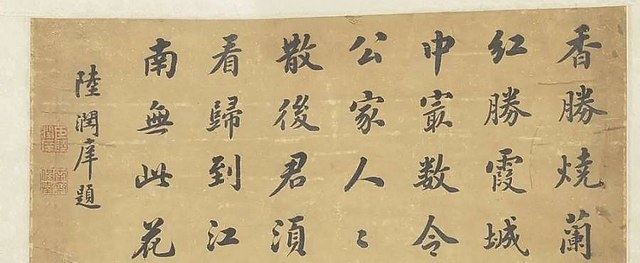 香勝燒蘭
紅勝霞城
中㝡数令
公家人〻
散後君須
看歸到江
南無此花
陸潤庠題